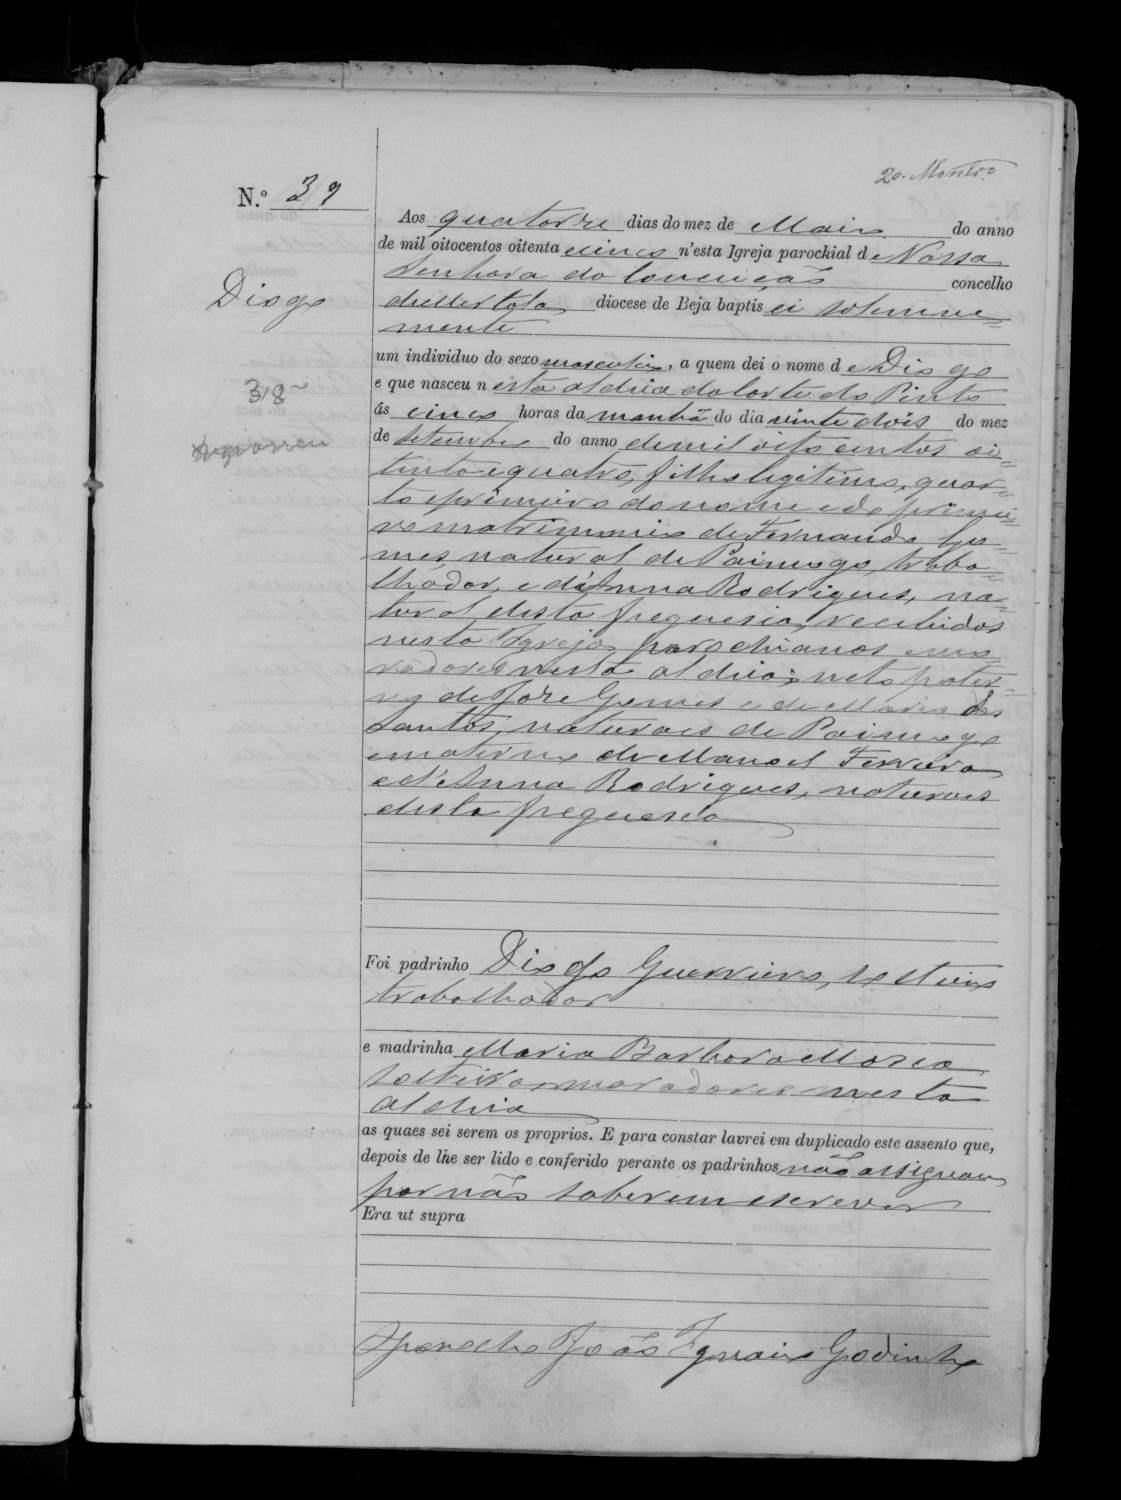 20. Montr.o
N.º 39
Aos quatorze dias do mez de Maio do anno
de mil oitocentos oitenta cinco n'esta Igreja parochial de Nossa
Senhora da Conceição concelho
de Mertola diocese de Beja baptisei solemne=
mente
Diogo
um individuo do sexo masculino, a quem dei o nome de Diogo
e que nasceu nesta aldeia da Corte do Pinto
38
ás cinco horas da manhã do dia vinte dois do mez
de Setembro do anno de mil oito centos oi=
tenta e quatro, filho legitimo, quar=
to e primeiro do nome e do primei=
ro matrimonio de Fernando Go=
mes, natural de Paimogo, traba=
lhador, e d'Anna Rodrigues, na=
tural desta freguesia, recebidos
nesta Igreja, parochianos e mo=
radores nesta aldeia; neto pater=
no de José Gomes e de Maria dos
Santos, naturaes de Paimogo
e materno de Manoel Ferreira
e d'Anna Rodrigues, naturaes
desta freguesia
Foi padrinho Diogo Guerreiro, solteiro
trabalhador
e madrinha Maria Barbora
solteira, moradores nesta
aldeia
as quaes sei serem os proprios. E para constar lavrei em duplicado este assento que,
depois de lhe ser lido e conferido perante os padrinhos não assignam
por não saberem escrever
Era ut supra
O Parocho João Ignacio Godinho